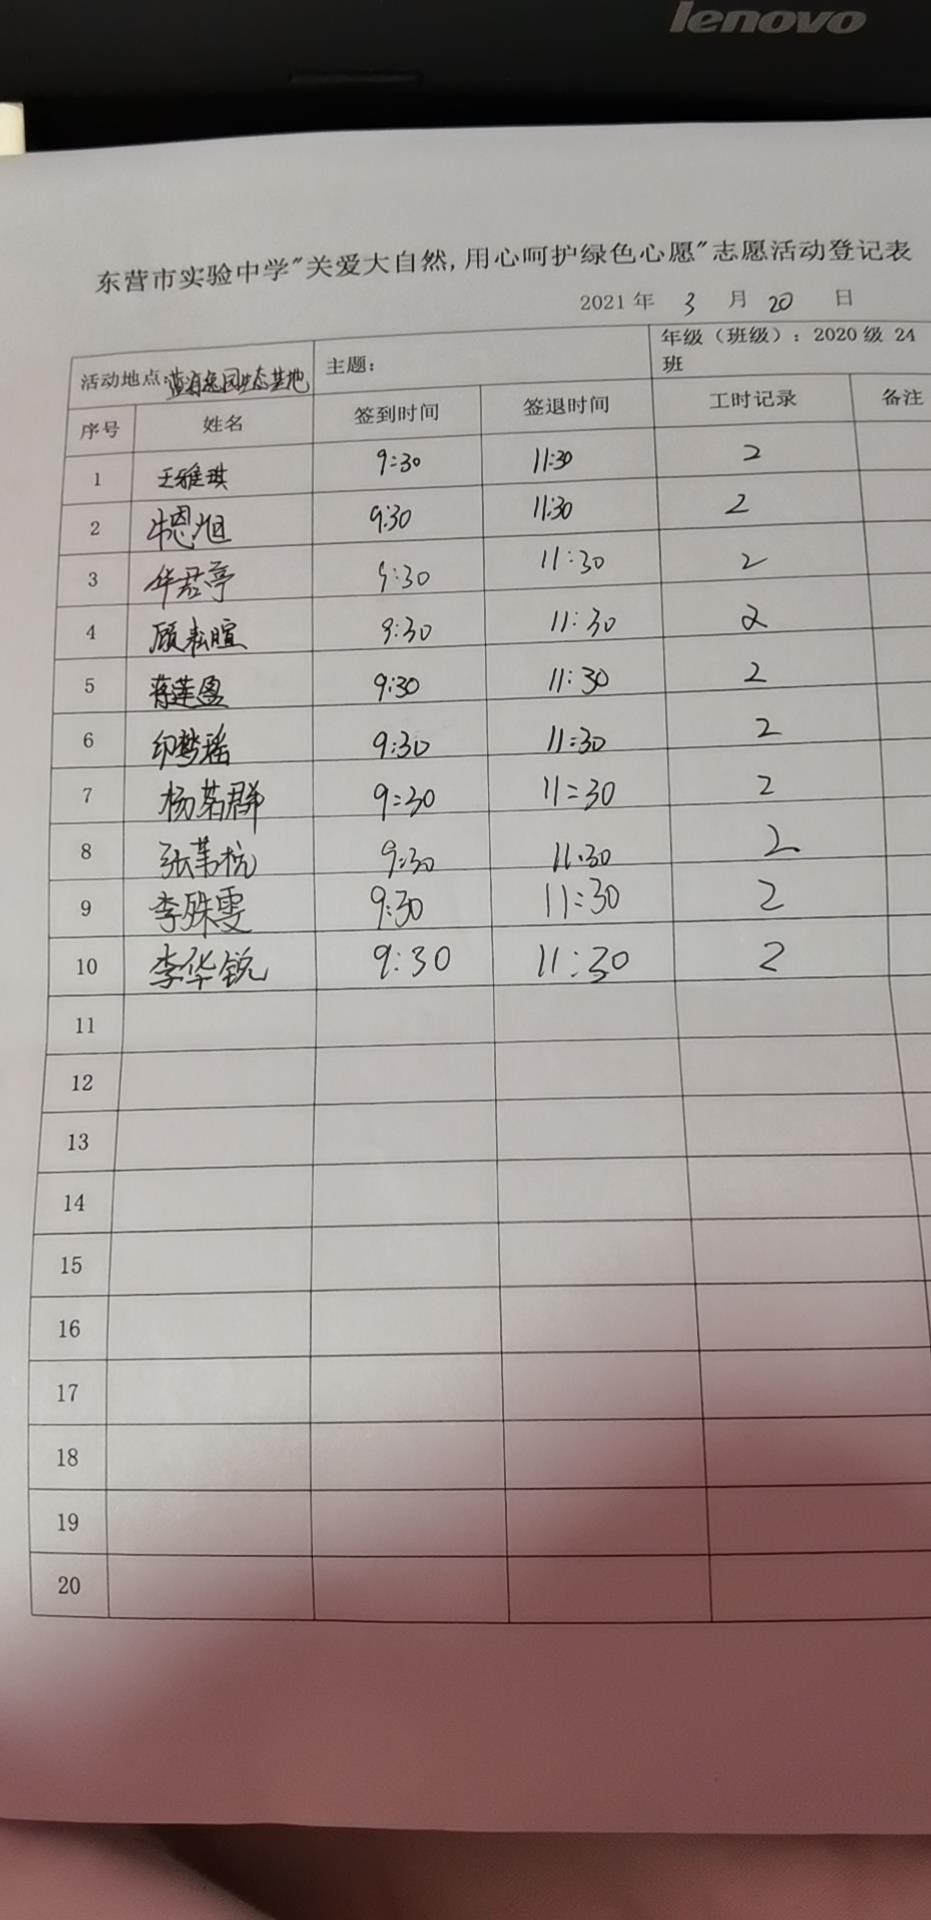 lenovo
东营市实验中学"关爱大自然,用心呵护绿色心愿"志愿活动登记表
2021 年 3 月 20 日
活动地点: 蓝海 园生态基地 主题: 年级（班级）: 2020 级 24 班
序号 姓名 签到时间 签退时间 工时记录 备注
1 王雅琪 9:30 11:30 2
2 牛恩旭 9:30 11:30 2
3 华君亭 9:30 11:30 2
4 顾耘暄 9:30 11:30 2
5 蒋莲盈 9:30 11:30 2
6 印梦瑶 9:30 11:30 2
7 杨茗群 9:30 11:30 2
8 张苇杭 9:30 11.30 2
9 李殊雯 9:30 11:30 2
10 李华锐 9:30 11:30 2
11
12
13
14
15
16
17
18
19
20